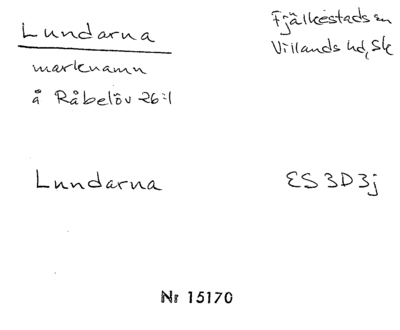 Lundarna
Fjälkestads sn
Villands hd, Sk
marknamn
å Råbelöv 26:1
Lundarna
ES3D3j
Nr 15170